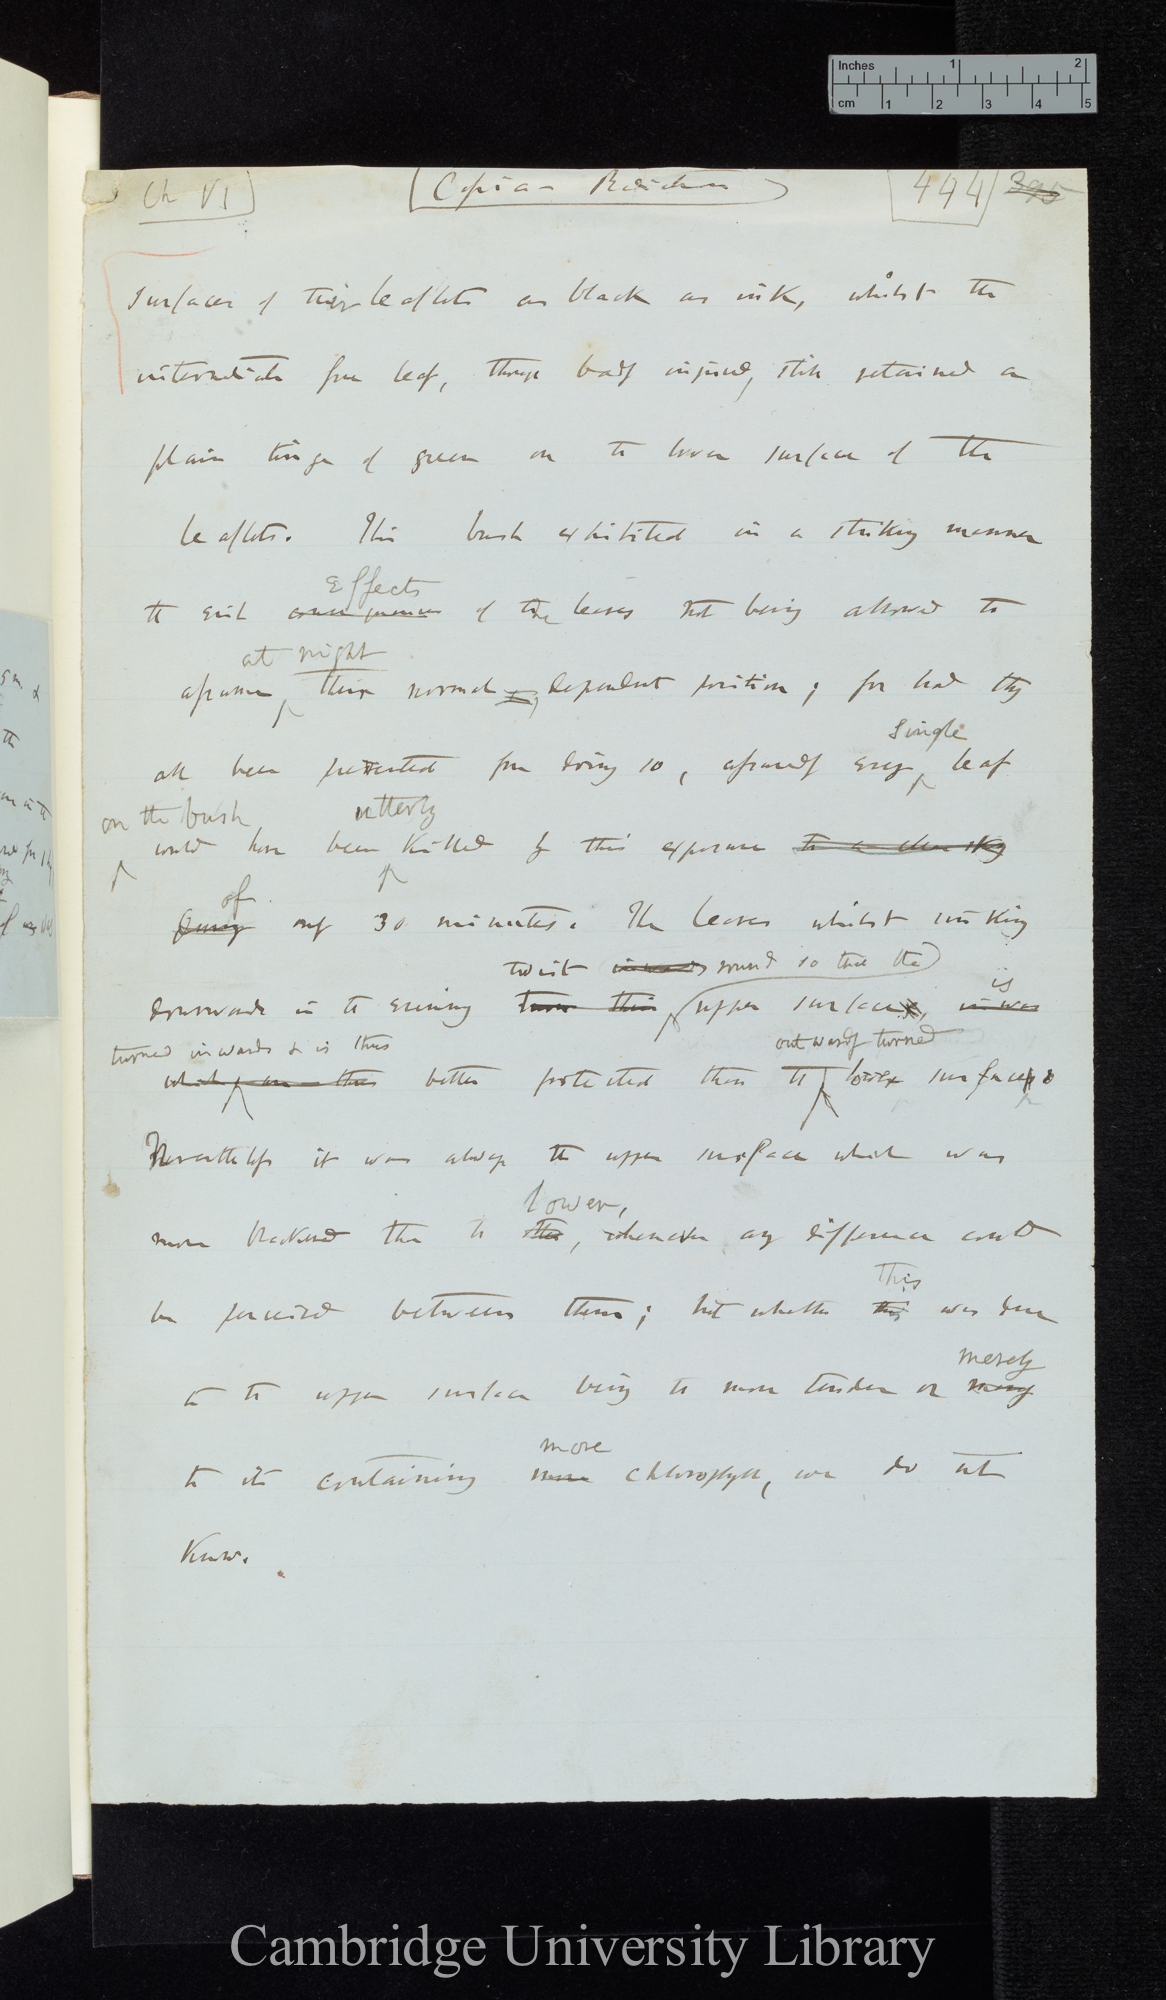 Inches 1 2
cm 1 2 3 4 5
Ch VI
444 395
surfaces of their leaflets as black as ink, whilst the
intermediate free leaf, though badly injured, still retained a
plain tinge of green on the lower surface of the
leaflets. This bush exhibited in a striking manner
effects
the evil consequences of the leaves not being allowed to
at night
assume, their normal dependent position; for had they
single
all been prevented from doing so, assuredly every leaf
on the bush utterly
would have been killed by this exposure to a clear sky
of
only 30 minutes. The leaves whilst sinking
twist inwards round so that the
downwards in the evening turn their upper surface, is
turned inwards & is thus outwardly turned
which are thus better protected than the lower surface.
Nevertheless it was always the upper surface which was
lower,
more blackened than the, whenever any difference could
this
be perceived between them; but whether this was due
merely
to the upper surface being the more tender or merely
more
to its containing more chlorophyll, we do not
know.
Cambridge University Library